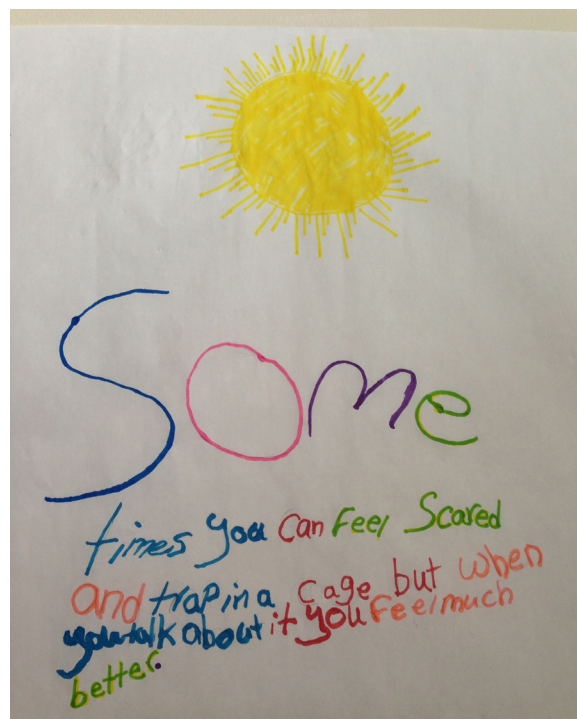 Some
times you can Feel Scared
and trap in a cage but when
you talk about it you Feel much
better.